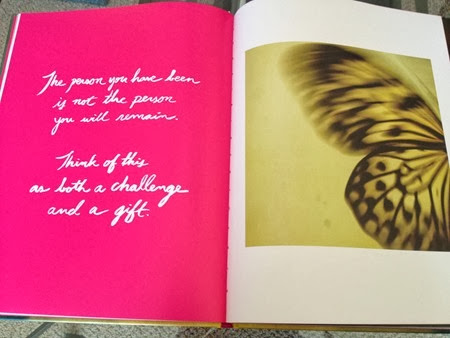 The person you have been
is not the person
you will remain.
Think of this
as both a challenge
and a gift.